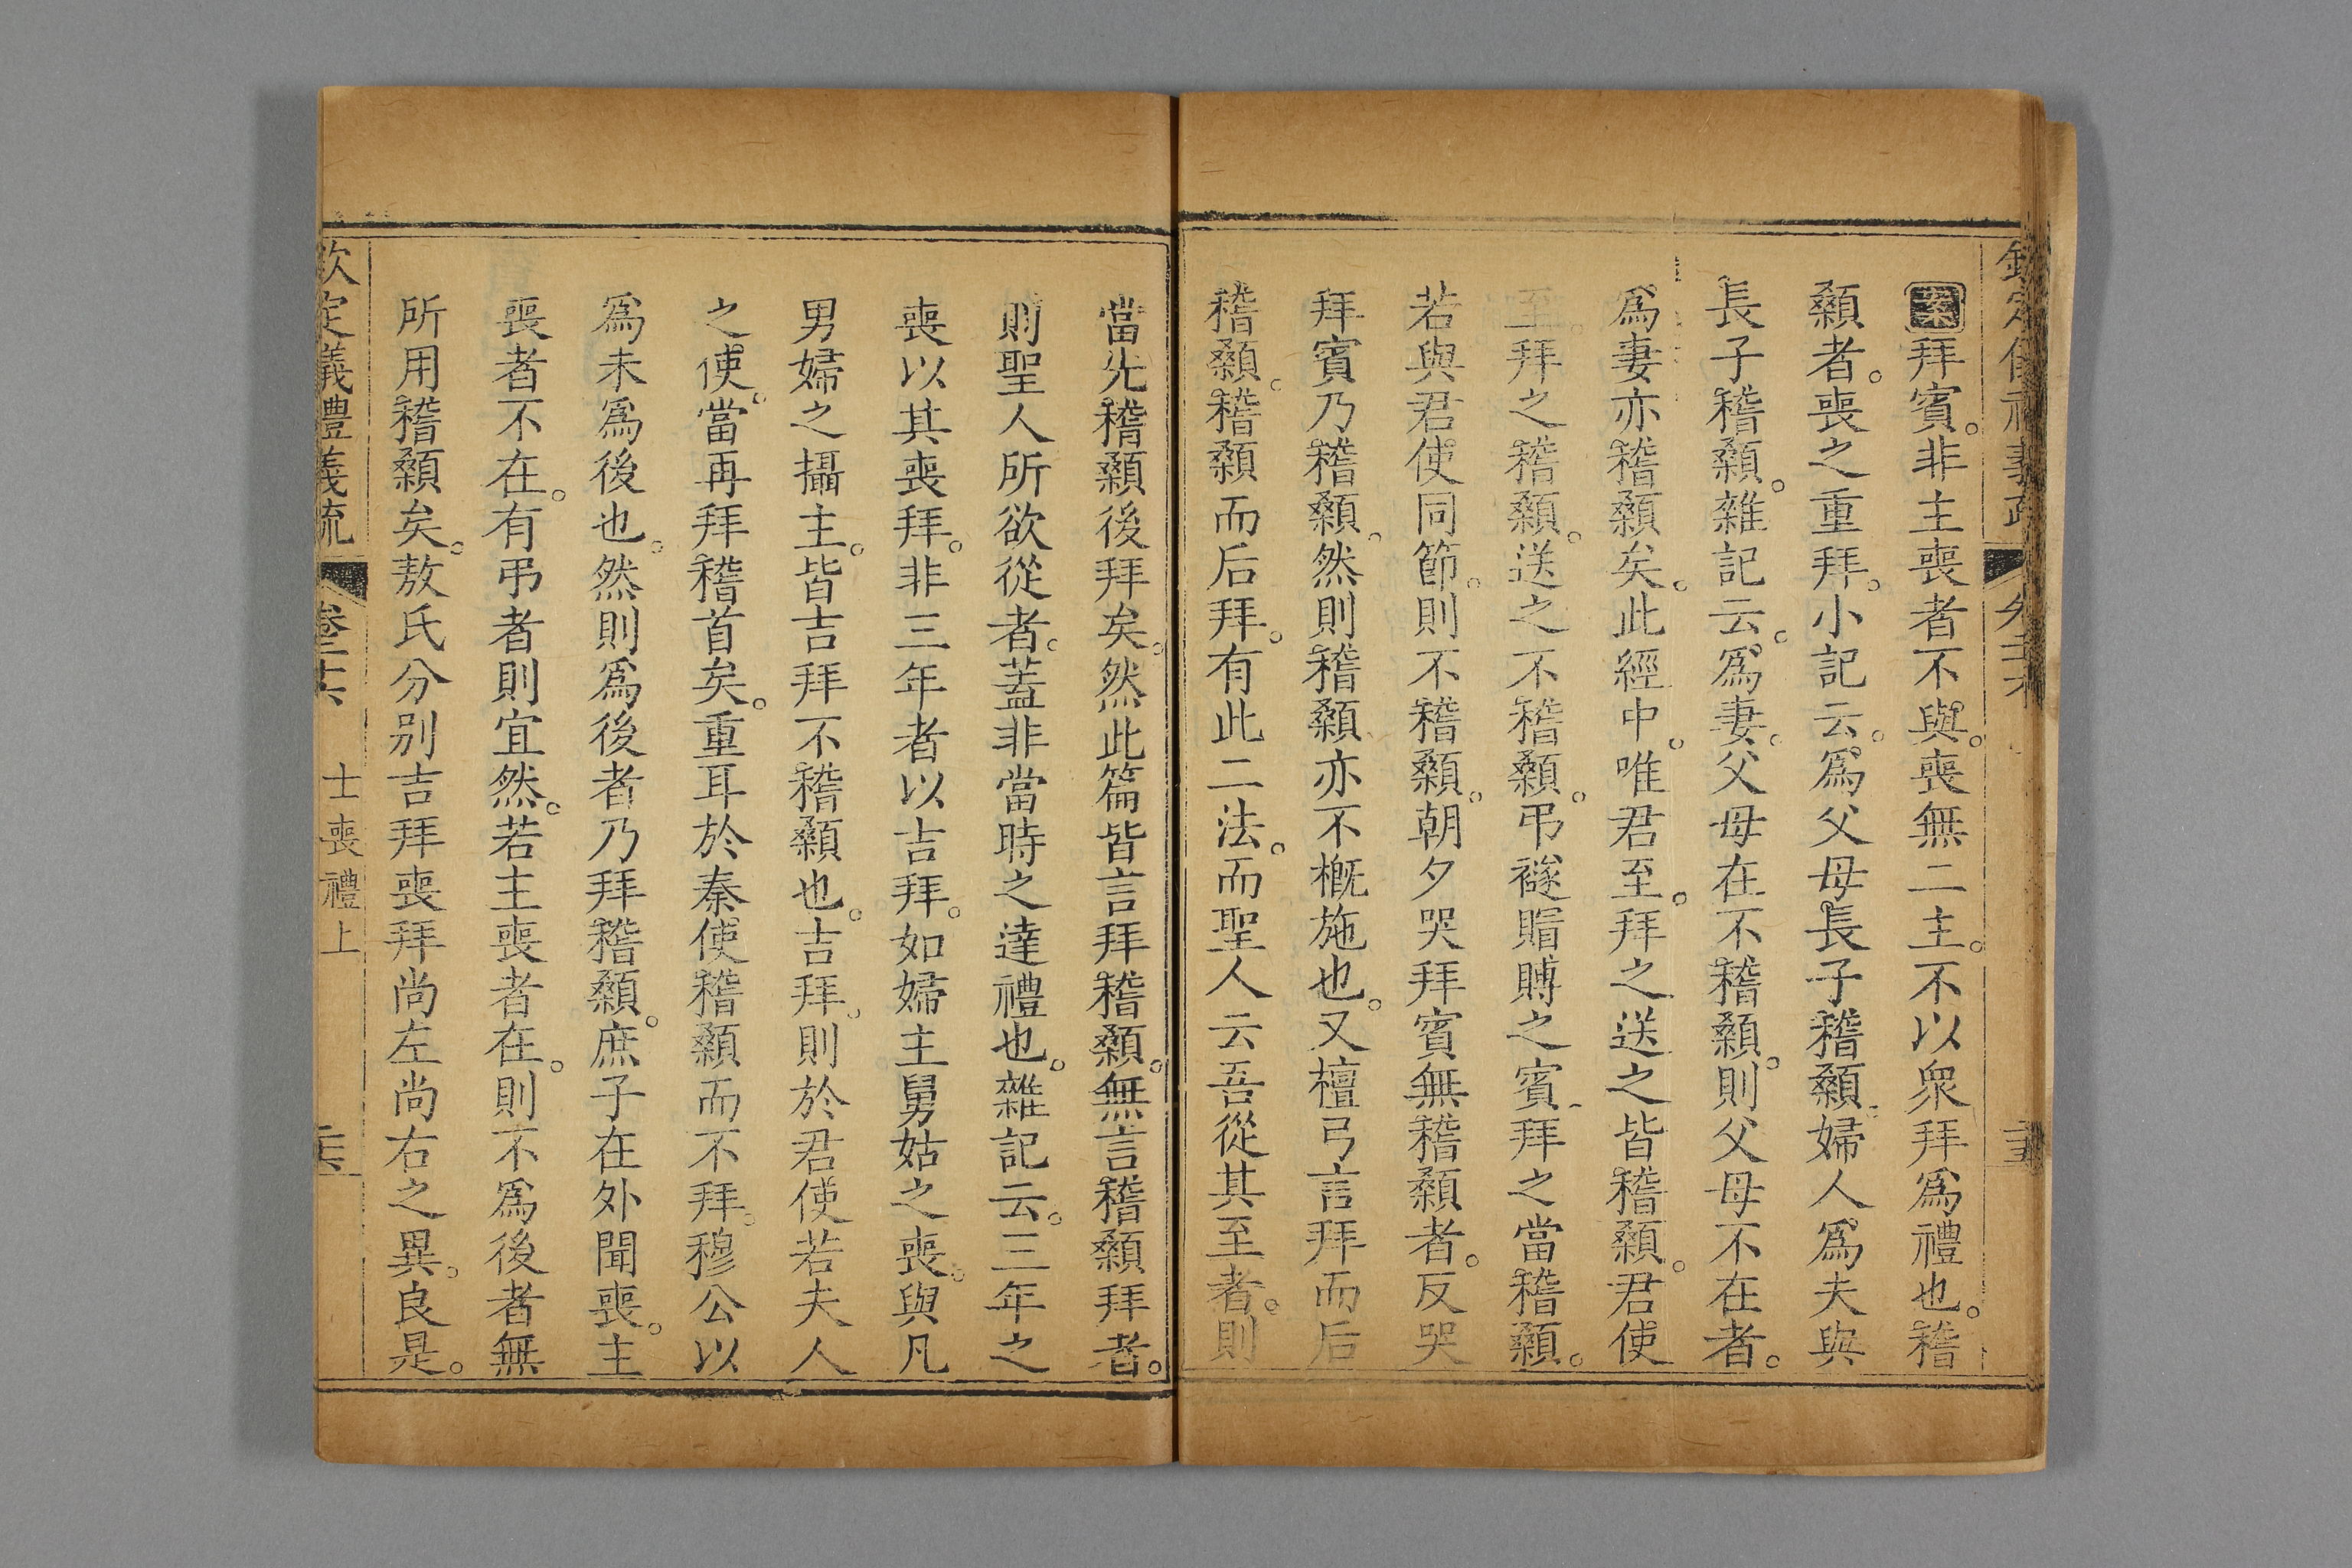 案拜賓。非主喪者不與。喪無二主。不以衆拜爲禮也。稽
顙者。喪之重拜。小記云。爲父母長子稽顙。婦人爲夫與
長子稽顙。雜記云。爲妻。父母在不稽顙。則父母不在者。
爲妻亦稽顙矣。此經中。唯君至。拜之送之皆稽顙。君使
至。拜之稽顙。送之不稽顙。弔襚賵賻之賓。拜之當稽顙。
若與君使同節。則不稽顙。朝夕哭拜賓無稽顙者。反哭
拜賓乃稽顙。然則稽顙亦不概施也。又檀弓言拜而后
稽顙。稽顙而后拜。有此二法。而聖人云吾從其至者。則
當先稽顙後拜矣。然此篇皆言拜稽顙。無言稽顙拜者。
則聖人所欲從者。蓋非當時之達禮也。雜記云。三年之
喪以其喪拜。非三年者以吉拜。如婦主舅姑之喪。與凡
男婦之攝主。皆吉拜不稽顙也。吉拜。則於君使若夫人
之使。當再拜稽首矣。重耳於秦使稽顙而不拜。穆公以
爲未爲後也。然則爲後者乃拜稽顙。庶子在外聞喪。主
喪者不在。有弔者則宜然。若主喪者在。則不爲後者無
所用稽顙矣。敖氏分別吉拜喪拜尚左尚右之異。良是。
欽定義禮義疏 卷二十六 士喪禮上